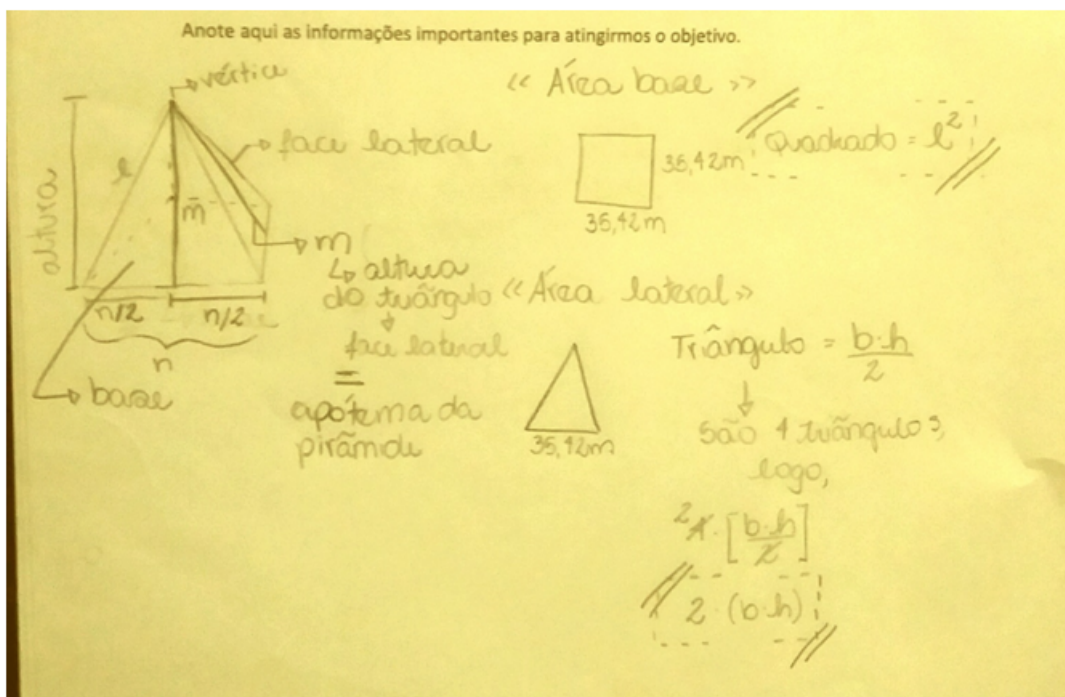 Anote aqui as informações importantes para atingirmos o objetivo.
vértice
face lateral
altura
l
m
m
altura
do triângulo
face lateral
=
apótema da
pirâmide
n/2
n/2
n
base
<< Área base >>
35,42m
35,42m
Quadrado = l²
<< Área lateral >>
35,42m
Triângulo = b·h/2
São 4 triângulos,
logo,
2 4·[b·h/2]
2·(b·h)